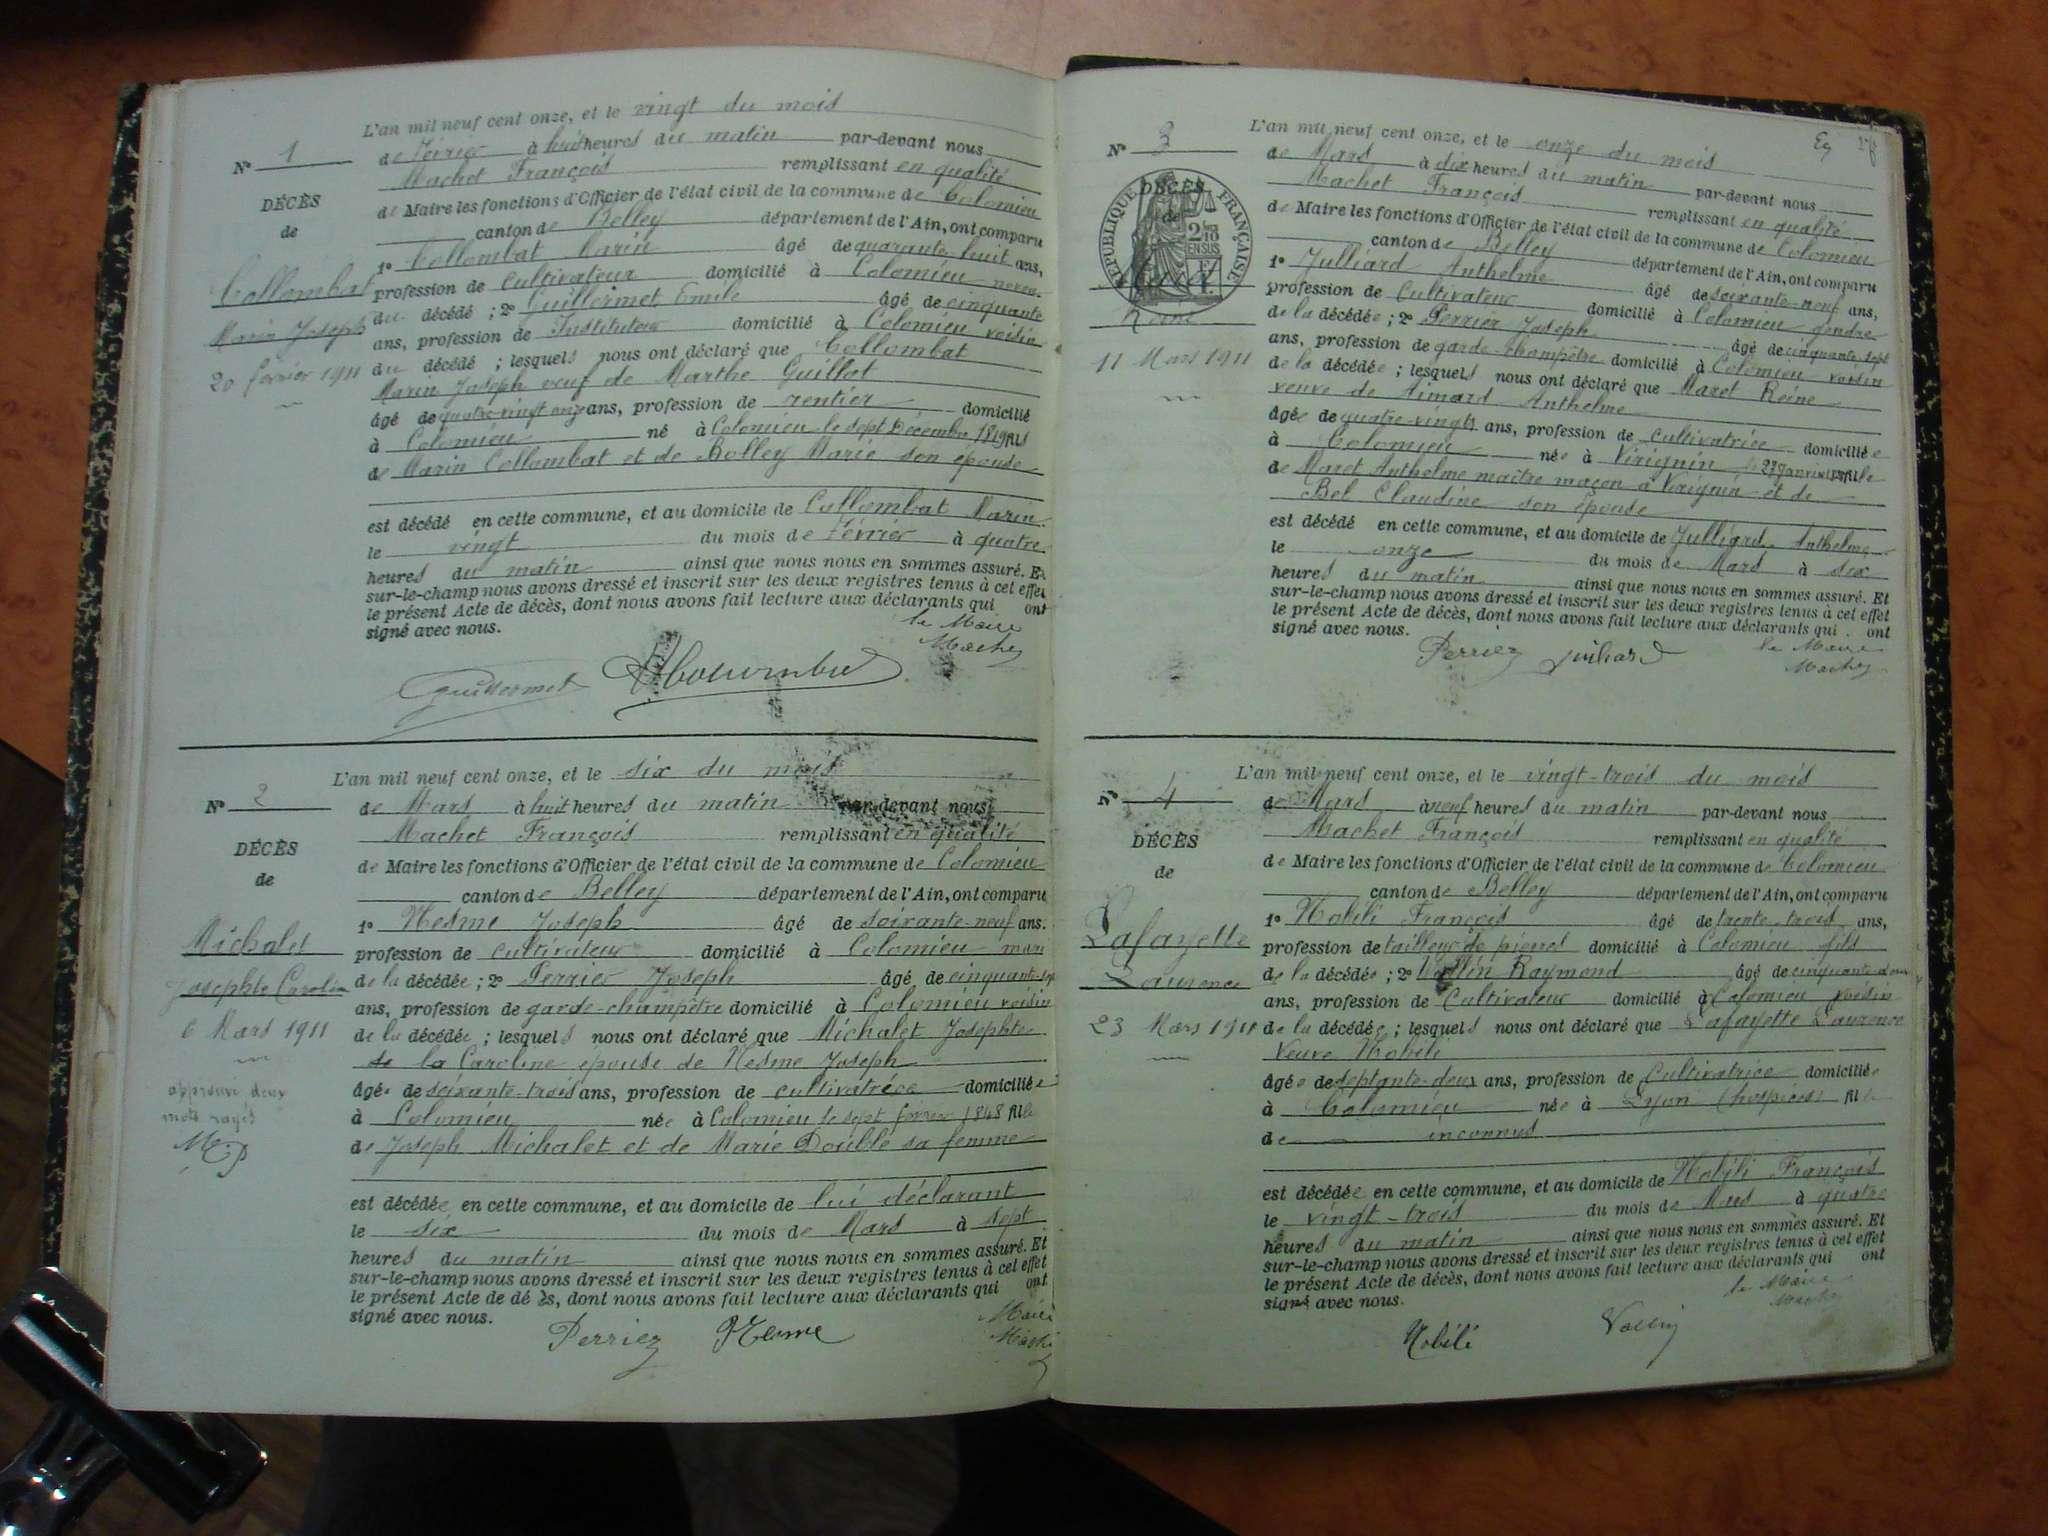 L'an mil neuf cent onze, et le vingt du mois
N° 1
de Février à huit heures du matin par-devant nous
Machet François remplissant en qualité
DÉCÈS
de Maire les fonctions d'Officier de l'état civil de la commune de Colomieu
de
canton de Belley département de l'Ain, ont comparu
1° Collombat Marin âgé de quarante-huit ans,
Collombat
profession de cultivateur domicilié à Colomieu neveu
Marin Joseph
du décédé ; 2° Guillermet Emile âgé de cinquante
ans, profession de Instituteur domicilié à Colomieu voisin
20 février 1911
du décédé ; lesquels nous ont déclaré que Collombat
Marin Joseph veuf de Marthe Guillot
âgé de quatre-vingt onze ans, profession de rentier domicilié
à Colomieu né à Colomieu le sept Décembre 1819 fils
de Marin Collombat et de Bolley Marie son épouse
est décédé en cette commune, et au domicile de Collombat Marin
le vingt du mois de Février à quatre
heures du matin ainsi que nous nous en sommes assuré. Et
sur-le-champ nous avons dressé et inscrit sur les deux registres tenus à cet effet
le présent Acte de décès, dont nous avons fait lecture aux déclarants qui ont
signé avec nous.
le Maire
Machet
Guillermet
L'an mil neuf cent onze, et le six du mois
N° 2
de Mars à huit heures du matin par-devant nous
Machet François remplissant en qualité
DÉCÈS
de Maire les fonctions d'Officier de l'état civil de la commune de Colomieu
de
canton de Belley département de l'Ain, ont comparu
1° Nesme Joseph âgé de soixante-neuf ans.
Michalet
profession de cultivateur domicilié à Colomieu mari
Josephte Caroline
de la décédée ; 2° Perrier Joseph âgé de cinquante-sept
ans, profession de garde-champêtre domicilié à Colomieu voisin
6 Mars 1911
de la décédée ; lesquels nous ont déclaré que Michalet Josephte
de la Caroline épouse de Nesme Joseph
approuvé deux
mots rayés
âgée de soixante-trois ans, profession de cultivatrice domiciliée
à Colomieu née à Colomieu le sept février 1848 fille
de Joseph Michalet et de Marie Double sa femme
est décédée en cette commune, et au domicile de lui déclarant
le six du mois de Mars à sept
heures du matin ainsi que nous nous en sommes assuré. Et
sur-le-champ nous avons dressé et inscrit sur les deux registres tenus à cet effet
le présent Acte de dé ès, dont nous avons fait lecture aux déclarants qui ont
signé avec nous.
Maire
Perrier Nesme
L'an mil neuf cent onze, et le onze du mois
N° 3
de Mars à dix heures du matin par-devant nous
Machet François remplissant en qualité
DÉCÈS
de
RÉPUBLIQUE FRANÇAISE
2/10 EN SUS
de Maire les fonctions d'Officier de l'état civil de la commune de Colomieu
canton de Belley département de l'Ain, ont comparu
1° Julliard Anthelme âgé de soixante-neuf ans,
profession de Cultivateur domicilié à Colomieu gendre
Reine
de la décédée ; 2° Perrier Joseph âgé de cinquante-sept
ans, profession de garde-champêtre domicilié à Colomieu voisin
11 Mars 1911
de la décédée ; lesquels nous ont déclaré que Maret Reine
veuve de Simard Anthelme
âgée de quatre-vingts ans, profession de cultivatrice domiciliée
à Colomieu née à Virignin
de Maret Anthelme maître maçon à Virignin et de
Bel Claudine son épouse
est décédé en cette commune, et au domicile de Julliard Anthelme
le onze du mois de Mars à six
heures du matin ainsi que nous nous en sommes assuré. Et
sur-le-champ nous avons dressé et inscrit sur les deux registres tenus à cet effet
le présent Acte de décès, dont nous avons fait lecture aux déclarants qui . ont
signé avec nous.
Perrier Julliard le Maire
Machet
L'an mil neuf cent onze, et le vingt-trois du mois
N° 4
de Mars à neuf heures du matin par-devant nous
Machet François remplissant en qualité
DÉCÈS
de Maire les fonctions d'Officier de l'état civil de la commune de Colomieu
de
canton de Belley département de l'Ain, ont comparu
1° Nobili François âgé de trente-trois ans,
Lafayette
profession de tailleur de pierres domicilié à Colomieu fils
Laurence
de la décédée ; 2° Vallin Raymond âgé de cinquante-deux
ans, profession de Cultivateur domicilié à Colomieu voisin
23 Mars 1911
de la décédée ; lesquels nous ont déclaré que Lafayette Laurence
Veuve Nobili
âgée de septante-deux ans, profession de Cultivatrice domiciliée
à Colomieu née à Lyon (hospices) fille
de inconnus
est décédée en cette commune, et au domicile de Nobili François
le vingt-trois du mois de Mars à quatre
heures du matin ainsi que nous nous en sommes assuré. Et
sur-le-champ nous avons dressé et inscrit sur les deux registres tenus à cet effet
le présent Acte de décès, dont nous avons fait lecture aux déclarants qui ont
signé avec nous.
le Maire
Machet
Nobili Vallin